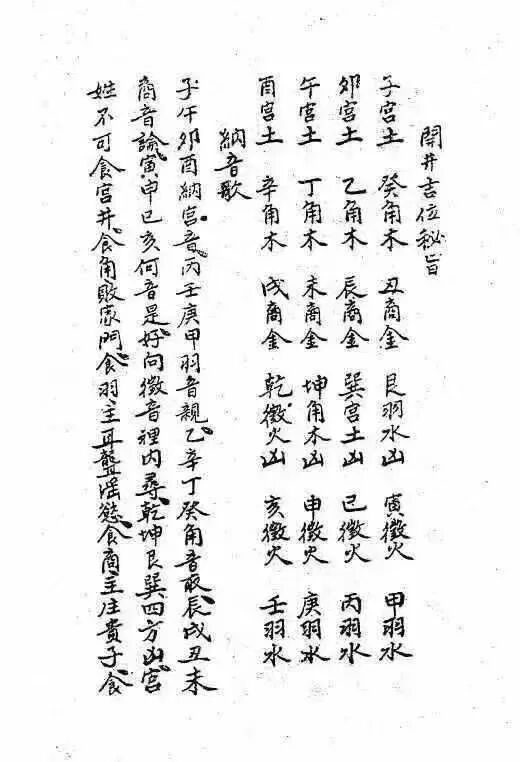 開井吉位秘旨
子宫土 癸角木 丑商金 艮羽水凶 寅徵火 甲羽水
卯宫土 乙角木 辰商金 巽宫土凶 巳徵火 丙羽水
午宫土 丁角木 未商金 坤角木凶 申徵火 庚羽水
酉宫土 辛角木 戌商金 乾徵火凶 亥徵火 壬羽水
納音歌
子午卯酉納宫音丙壬庚甲羽音親乙辛丁癸角音取辰戌丑未
商音論寅申巳亥何音是好向徵音裡内尋乾坤艮巽四方凶宫
姓不可食宫井食角敗家門食羽主耳聾淫慾食商主注貴子食